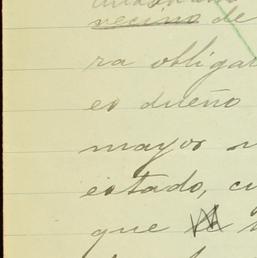 vecino de
ra obligar
es dueño
mayor
estado, cu
que